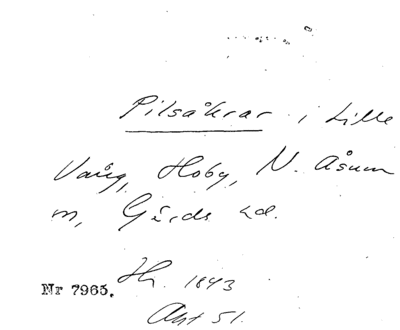 Pilsåkrar i Lille
Vång, Hoby, N. Åsum
m, Gärds hd.
Hr. 1843
Akt 51.
Nr 7965.